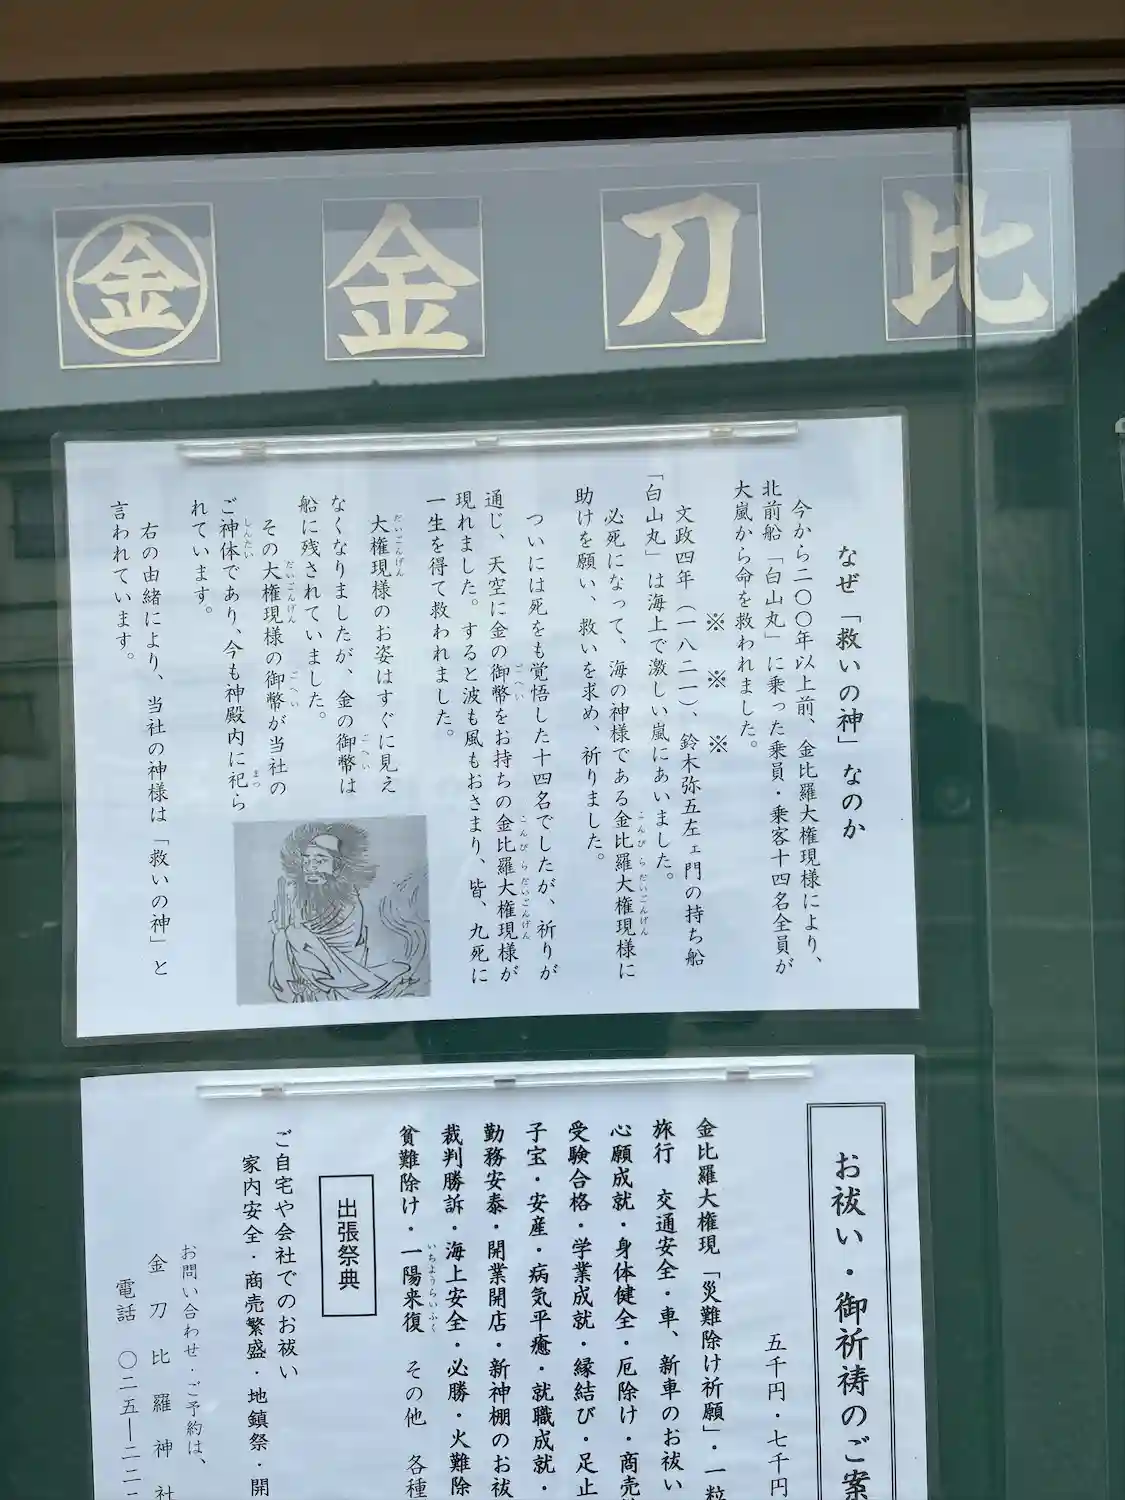 ㊎ 金 刀 比
なぜ「救いの神」なのか
今から二〇〇年以上前、金比羅大権現様により、
北前船「白山丸」に乗った乗員・乗客十四名全員が
大嵐から命を救われました。
※ ※ ※
文政四年（一八二一）、鈴木弥五左ェ門の持ち船
「白山丸」は海上で激しい嵐にあいました。
必死になって、海の神様である金比羅大権現様に
こんぴら だいごんげん
助けを願い、救いを求め、祈りました。
ついには死をも覚悟した十四名でしたが、祈りが
通じ、天空に金の御幣をお持ちの金比羅大権現様が
ごへい こんぴら だいごんげん
現れました。すると波も風もおさまり、皆、九死に
一生を得て救われました。
大権現様のお姿はすぐに見え
だいごんげん
なくなりましたが、金の御幣は
ごへい
船に残されていました。
その大権現様の御幣が当社の
だいごんげん ごへい
ご神体であり、今も神殿内に祀ら
しんたい まつ
れています。
右の由緒により、当社の神様は「救いの神」と
言われています。
お祓い・御祈祷のご案
五千円・七千円
金比羅大権現「災難除け祈願」・一粒
旅行 交通安全・車、新車のお祓い
心願成就・身体健全・厄除け・商売
受験合格・学業成就・縁結び・足止
子宝・安産・病気平癒・就職成就・
勤務安泰・開業開店・新神棚のお祓
裁判勝訴・海上安全・必勝・火難除
貧難除け・一陽来復 その他 各種
いちようらいふく
出張祭典
ご自宅や会社でのお祓い
家内安全・商売繁盛・地鎮祭・開
お問い合わせ・ご予約は、
金刀比羅神社
電話 〇二五―二二